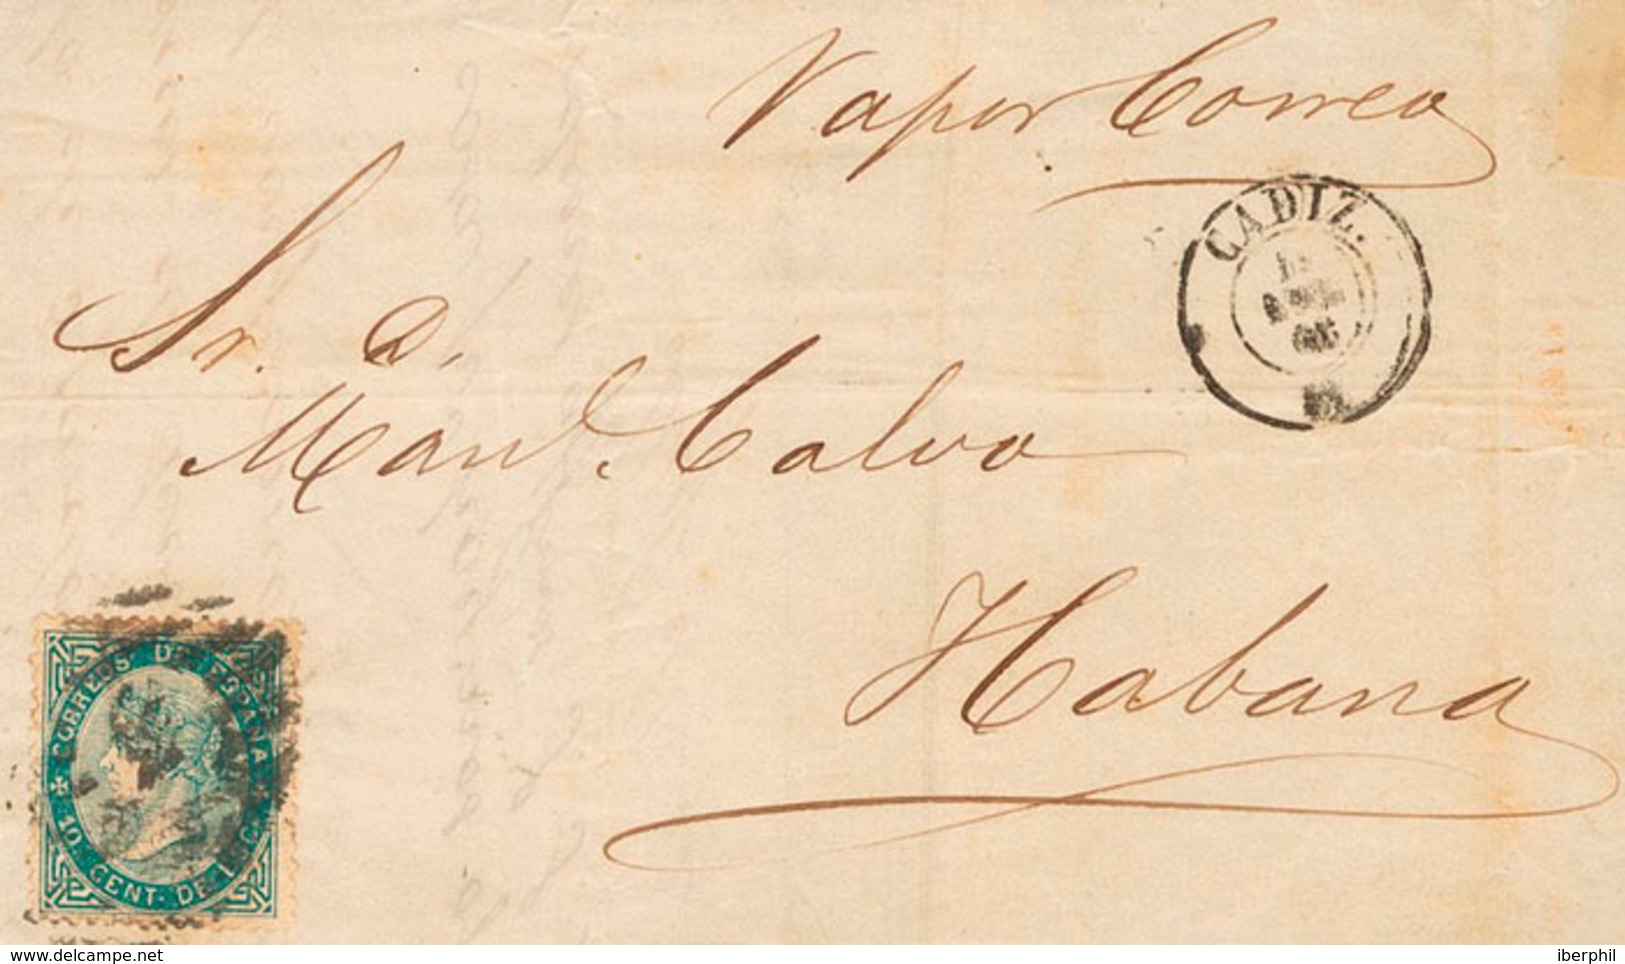 Vapor Correo
CADIZ.
Sr. D.
Manl. Calvo
Habana
CORREOS DE ESPAÑA
10 CENT. DE
www.delcampe.net
iberphil